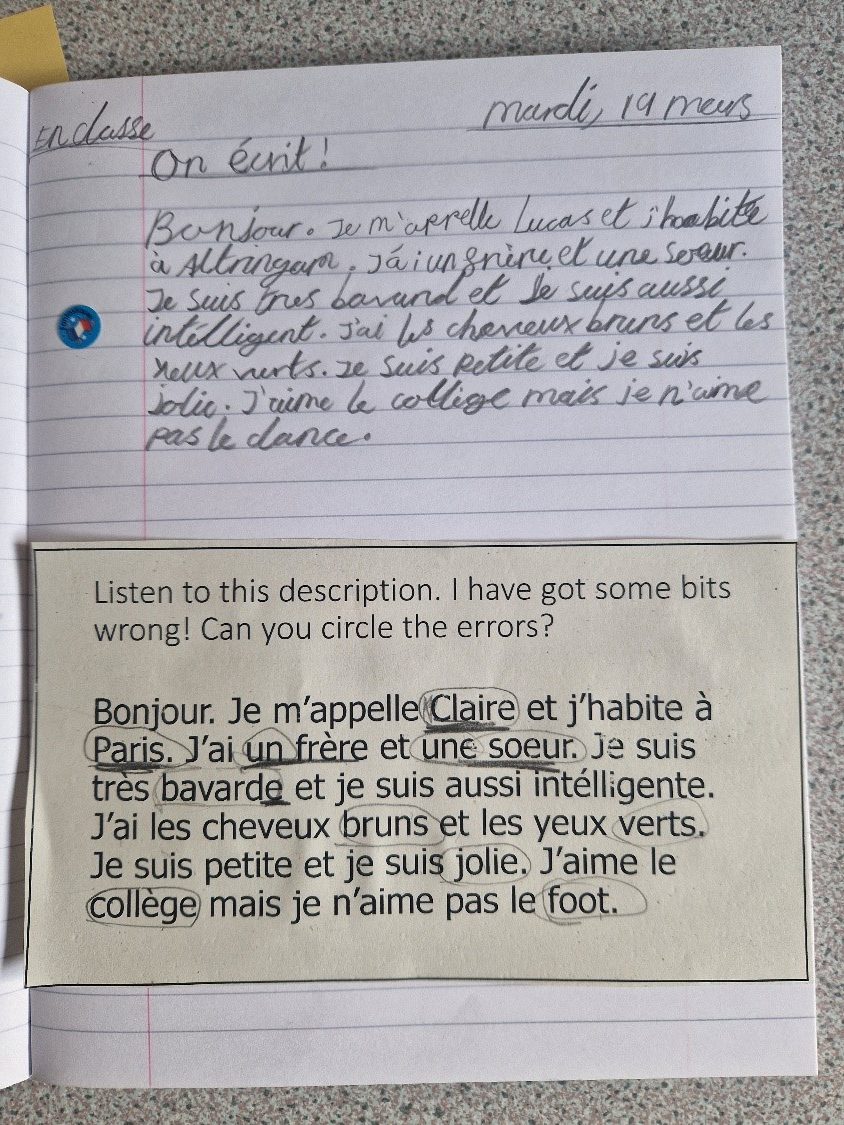 En classe
mardi, 19 mars
On écrit!
Bonjour. Je m'appelle Lucas et j'habite
à Altringam. J'ai un frère et une soeur.
Je suis tres bavard et Je suis aussi
intélligent. J'ai les cheveux bruns et les
yeux verts. Je suis petite et je suis
jolie. J'aime le collège mais je n'aime
pas le dance.
Listen to this description. I have got some bits
wrong! Can you circle the errors?
Bonjour. Je m'appelle Claire et j'habite à
Paris. J'ai un frère et une soeur. Je suis
très bavarde et je suis aussi intélligente.
J'ai les cheveux bruns et les yeux verts.
Je suis petite et je suis jolie. J'aime le
collège mais je n'aime pas le foot.